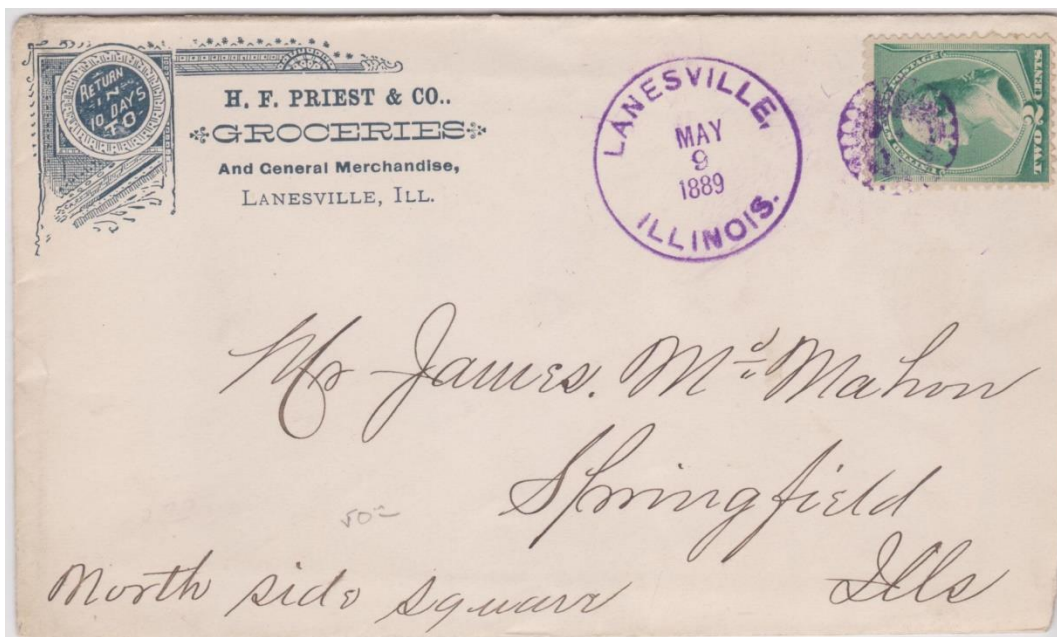 RETURN
IN
10 DAYS
TO
H. F. PRIEST & CO..
GROCERIES
And General Merchandise,
LANESVILLE, ILL.
LANESVILLE,
MAY
9
1889
ILLINOIS.
TWO 2 CENTS
Mr James. Mc Mahon
Springfield
Ills
North side square